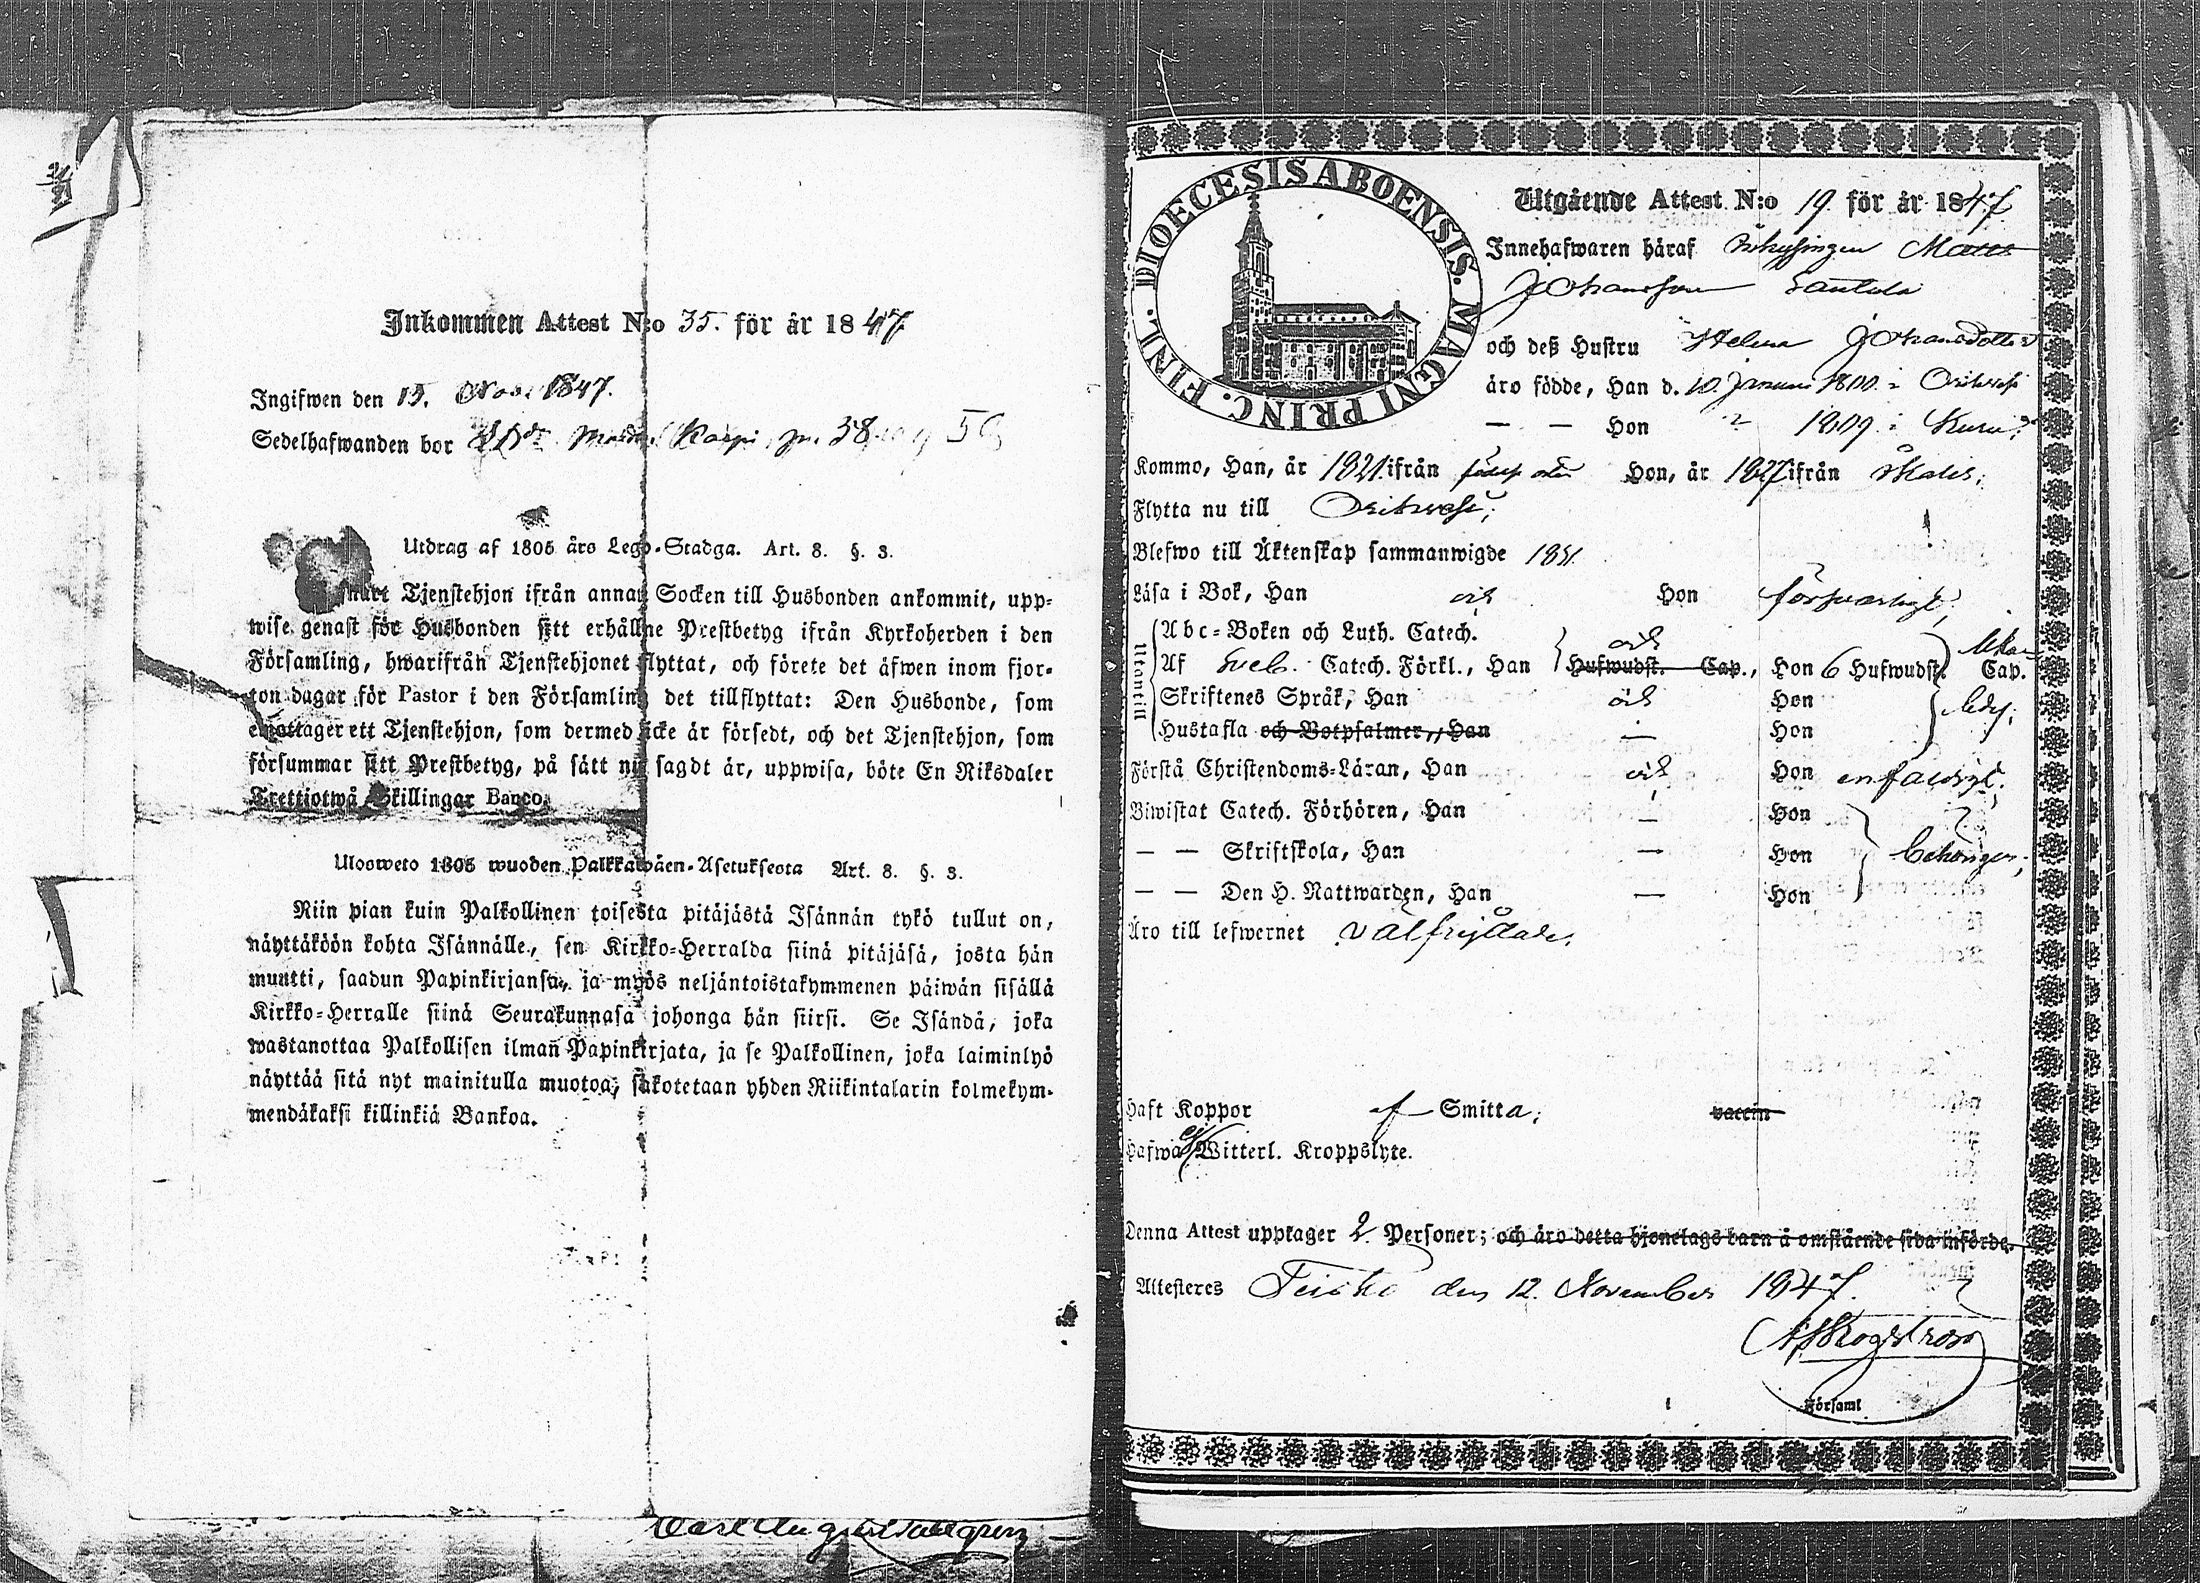 Inkommen Attest N:o 35. för år 1847
Ingifwen den 15. Nov. 1847.
Sedelhafwanden bor
Utdrag af 1805 års Lego-Stadga. Art. 8. §. 3.
Tjenstehjon ifrån annan Socken till Husbonden ankommit, upp-
wise genast för Husbonden sitt erhållne Prestbetyg ifrån Kyrkoherden i den
Församling, hwarifrån Tjenstehjonet flyttat, och förete det äfwen inom fjor-
ton dagar för Pastor i den Församling det tillflyttat: Den Husbonde, som
emottager ett Tjenstehjon, som dermed icke är försedt, och det Tjenstehjon, som
försummar sitt Prestbetyg, på sätt nu sagdt är, uppwisa, böte En Riksdaler
Trettiotwå Skillingar Banco.
Ulosweto 1805 wuoden Palkkawäen-Asetuksesta Art. 8. §. 3.
Niin pian kuin Palkollinen toisesta pitäjästä Isännän tykö tullut on,
näyttäköön kohta Isännälle, sen Kirkko-Herralda siinä pitäjäsä, josta hän
muutti, saadun Papinkirjansa, ja myös neljäntoistakymmenen päiwän sisällä
Kirkko-Herralle siinä Seurakunnasa johonga hän siirsi. Se Isändä, joka
wastanottaa Palkollisen ilman Papinkirjata, ja se Palkollinen, joka laiminlyö
näyttää sitä nyt mainitulla muotoa, sakotetaan yhden Riikintalarin kolmekym-
mendäkaksi killinkiä Bankoa.
DIOECESIS ABOENSIS. MAGNI PRINC. FINL.
Utgående Attest N:o 19 för år 1847
Innehafwaren häraf Inhysingen Matts
Johansson
och deß Hustru Helena Johansdotter
äro födde, Han d. 10 Januari 1800 i Orihvesi
— — Hon 1809 i Kuru;
Kommo, Han, år 1821 ifrån Hon, år 1827 ifrån
Flytta nu till Orihvesi;
Blefwo till Äktenskap sammanwigde 1831
Läsa i Bok, Han och Hon försvarligt;
Utantill
Abc-Boken och Luth. Catech. och
Af Sveb. Catech. Förkl., Han Hufwudst. Cap., Hon 6 Hufwudst. Cap.
Skriftenes Språk, Han och Hon
Hustafla och Botpsalmer, Han — Hon
Förstå Christendoms-Läran, Han och Hon enfaldigt;
Biwistat Catech. Förhören, Han — Hon
— — Skriftskola, Han — Hon behörigen;
— — Den H. Nattwarden, Han — Hon
Äro till lefwernet välfrejdade;
Haft Koppor af Smitta; vaccin
Hafwa ej Witterl. Kroppslyte.
Denna Attest upptager 2 Personer; och äro detta hjonelags barn å omstående sida införde.
Attesteras Teisko den 12. November 1847.
Församl
Carl August Tallgren